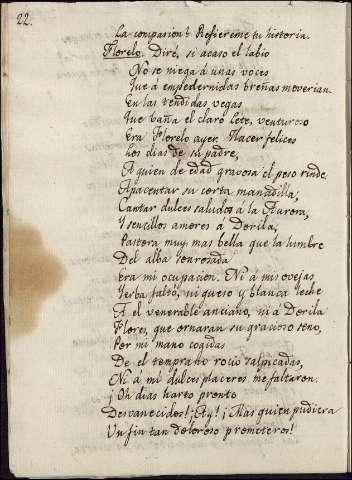 22.
La compasion? Refiereme tu historia.
Florelo. Diré, si acaso el labio
No se niega á unas voces
Que á empedernidas breñas moverian.
En las tendidas vegas
Que baña el claro Lete, venturoso
Era Florelo ayer. Hacer felices
Los dias de su padre,
A quien de edad gravosa el peso rinde.
Apacentar su corta manadilla;
Cantar dulces saludos á la Aurora,
Y sencillos amores á Dorila,
Pastora muy mas bella que la lumbre
Del alba sonrosada
Era mi ocupacion. Ni á mis ovejas
Yerba faltó, ni queso y blanca leche
A el venerable anciano, ni á Dorila
Flores, que ornaran su gracioso seno,
Por mi mano cogidas
De el temprano rocio salpicadas,
Ni á mi dulces placeres me faltaron.
¡Oh dias harto pronto
Desvanecidos! ¡Ay! ¡Mas quien pudiera
Un fin tan doloroso prometeros!